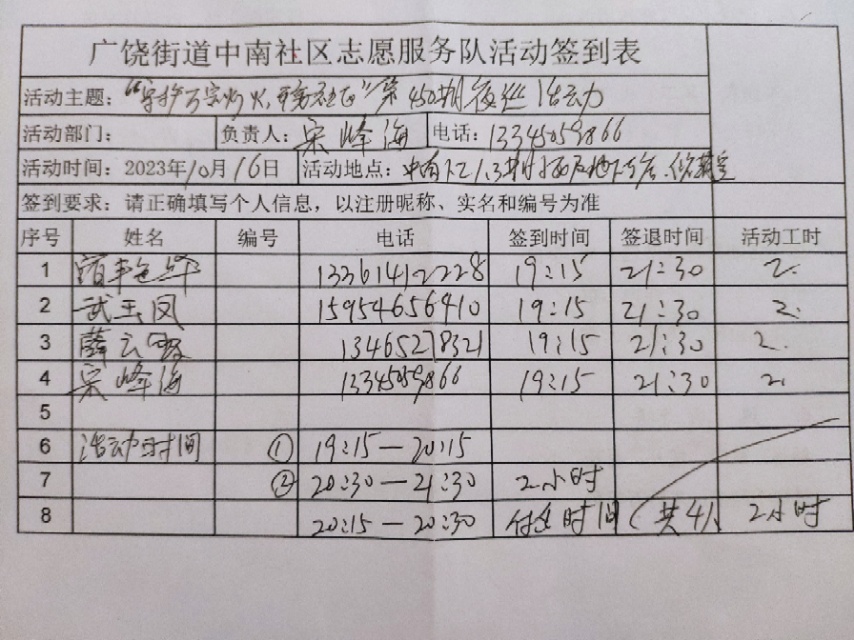 广饶街道中南社区志愿服务队活动签到表
活动主题：“守护万家灯火，平安社区”第450期夜巡活动
活动部门： 负责人：宋峰海 电话：13345059866
活动时间：2023年10月16日 活动地点：中南
签到要求：请正确填写个人信息，以注册昵称、实名和编号为准
序号 姓名 编号 电话 签到时间 签退时间 活动工时
1 13361412228 19:15 21:30 2.
2 武玉凤 15954656410 19:15 21:30 2.
3 薛云 13465278321 19:15 21:30 2.
4 宋峰海 13345059866 19:15 21:30 2.
5
6 活动时间 ① 19:15—20:15
7 ② 20:30—21:30 2小时
8 20:15—20:30 休息时间（共4人 2小时